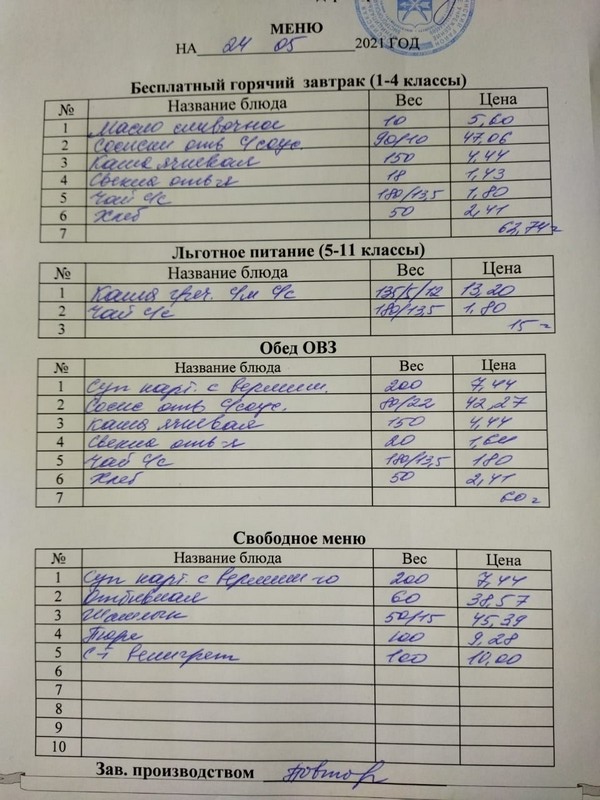 МЕНЮ
НА 24 05 2021 ГОД
Бесплатный горячий завтрак (1-4 классы)
№ Название блюда Вес Цена
1 Масло сливочное 10 5,60
2 Сосиски отв с/соус 90/10 47,06
3 Каша ячневая 150 4,44
4 Свекла отв-я 18 1,43
5 Чай с/с 180/13,5 1,80
6 Хлеб 50 2,41
7 62,74
Льготное питание (5-11 классы)
№ Название блюда Вес Цена
1 Каша греч. с/м с/с 135/5/12 13,20
2 Чай с/с 180/13,5 1,80
3 15
Обед ОВЗ
№ Название блюда Вес Цена
1 Суп карт. с вермиш. 200 7,44
2 Сосис отв с/соус. 80/22 42,27
3 Каша ячневая 150 4,44
4 Свекла отв-я 20 1,64
5 Чай с/с 180/13,5 180
6 Хлеб 50 2,41
7 60
Свободное меню
№ Название блюда Вес Цена
1 Суп карт. с вермиш-ю 200 7,44
2 Отбивная 60 38,57
3 Шашлык 50/15 45,39
4 Пюре 100 9,28
5 С-т винегрет 100 10,00
6
7
8
9
10
Зав. производством